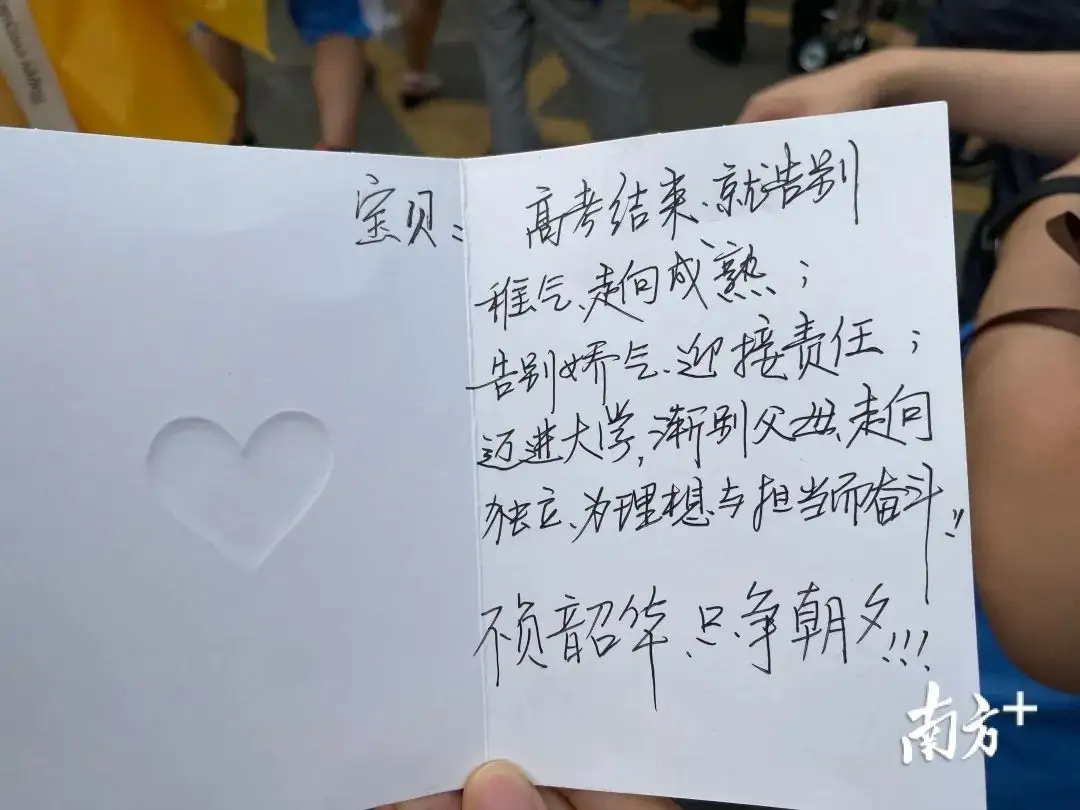 宝贝: 高考结束、就告别
稚气、走向成熟;
告别娇气、迎接责任;
迈进大学,渐别父母、走向
独立、为理想与担当而奋斗!!
不负韶华、只争朝夕!!!
南方+